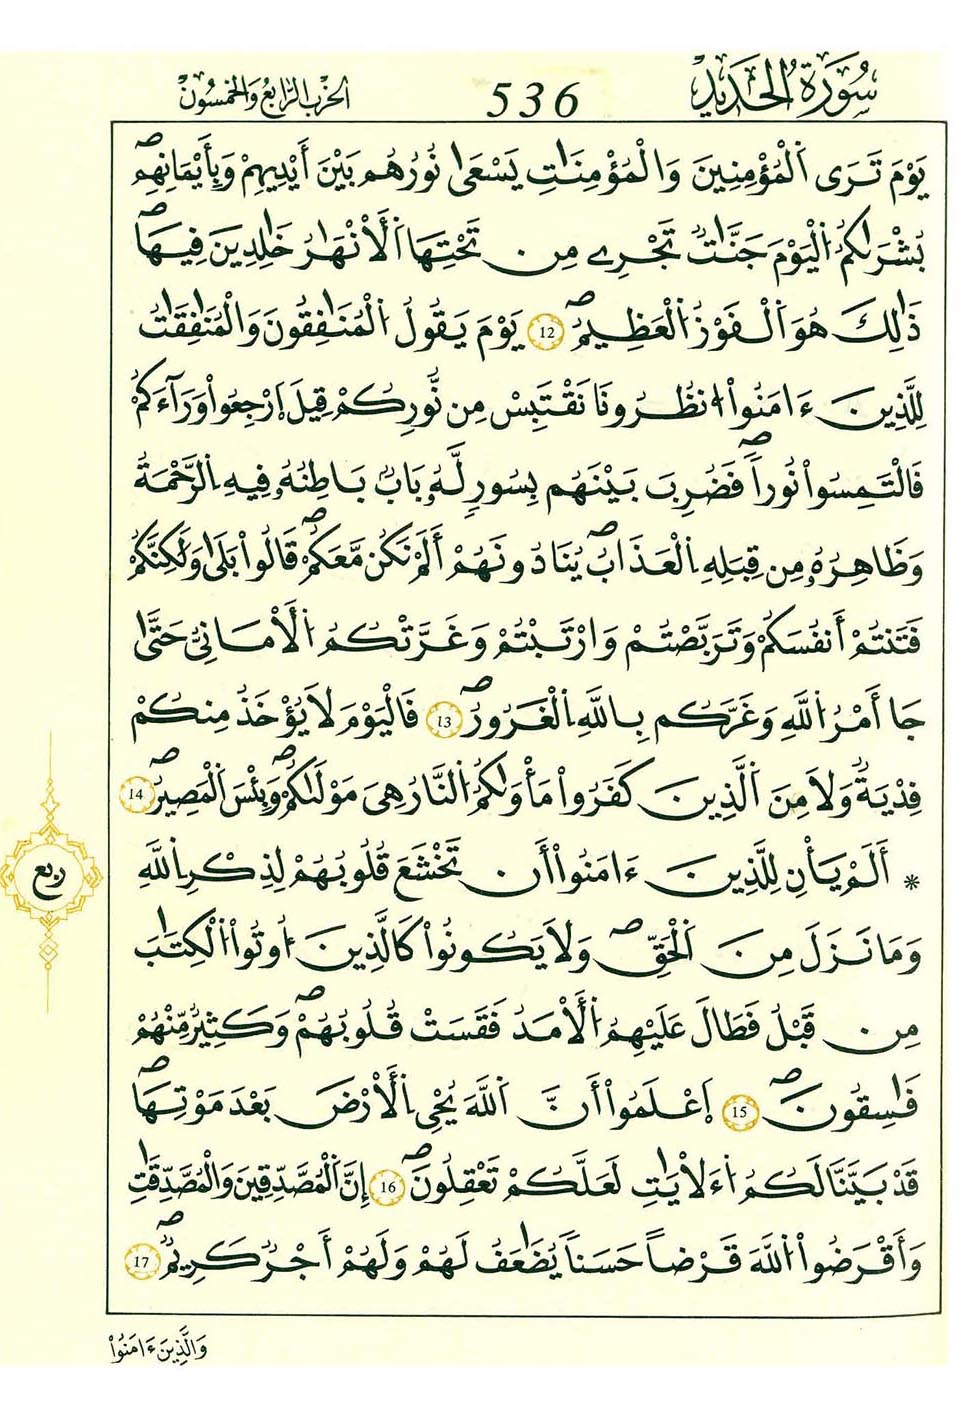 سُورَةُ الحَدِيدِ
536
الحزب الرّابع والخمسون
يَوْمَ تَرَى اَلْمُؤْمِنِينَ وَالْمُؤْمِنَٰتِ يَسْعَىٰ نُورُهُم بَيْنَ أَيْدِيهِمْ وَبِأَيْمَٰنِهِمۖ
بُشْرَىٰكُمُ اُلْيَوْمَ جَنَّٰتٌ تَجْرِے مِن تَحْتِهَا اَلْأَنْهَٰرُ خَٰلِدِينَ فِيهَاۖ
ذَٰلِكَ هُوَ اَلْفَوْزُ اُلْعَظِيمُۖ 12 يَوْمَ يَقُولُ اُلْمُنَٰفِقُونَ وَالْمُنَٰفِقَٰتُ
لِلَّذِينَ ءَامَنُواْ اُنظُرُونَا نَقْتَبِسْ مِن نُّورِكُمْ قِيلَ اَرْجِعُواْ وَرَآءَكُمْ
فَالْتَمِسُواْ نُوراًۖ فَضُرِبَ بَيْنَهُم بِسُورٍ لَّهُۥ بَابٌ بَاطِنُهُۥ فِيهِ اِلرَّحْمَةُ
وَظَٰهِرُهُۥ مِن قِبَلِهِ اِلْعَذَابُۖ يُنَادُونَهُمْ أَلَمْ نَكُن مَّعَكُمْۖ قَالُواْ بَلَىٰ وَلَٰكِنَّكُمْ
فَتَنتُمْ أَنفُسَكُمْ وَتَرَبَّصْتُمْ وَارْتَبْتُمْ وَغَرَّتْكُمُ اُلْأَمَانِيُّ حَتَّىٰ
جَا أَمْرُ اُللَّهِ وَغَرَّكُم بِاللَّهِ اِلْغَرُورُۖ 13 فَالْيَوْمَ لَا يُؤْخَذُ مِنكُمْ
فِدْيَةٌ وَلَا مِنَ اَلَّذِينَ كَفَرُواْ مَأْوَىٰكُمُ اُلنَّارُ هِيَ مَوْلَىٰكُمْۖ وَبِئْسَ اَلْمَصِيرُۖ 14
* أَلَمْ يَأْنِ لِلَّذِينَ ءَامَنُواْ أَن تَخْشَعَ قُلُوبُهُمْ لِذِكْرِ اِللَّهِ
وَمَا نَزَلَ مِنَ اَلْحَقِّۖ وَلَا يَكُونُواْ كَالَّذِينَ أُوتُواْ اُلْكِتَٰبَ
مِن قَبْلُ فَطَالَ عَلَيْهِمُ اُلْأَمَدُ فَقَسَتْ قُلُوبُهُمْۖ وَكَثِيرٌ مِّنْهُمْ
فَٰسِقُونَۖ 15 اِعْلَمُواْ أَنَّ اَللَّهَ يُحْيِ اِلْأَرْضَ بَعْدَ مَوْتِهَاۖ
قَدْ بَيَّنَّا لَكُمُ اُءَلْأيَٰتِ لَعَلَّكُمْ تَعْقِلُونَۖ 16 إِنَّ اَلْمُصَّدِّقِينَ وَالْمُصَّدِّقَٰتِ
وَأَقْرَضُواْ اُللَّهَ قَرْضاً حَسَناً يُضَٰعَفُ لَهُمْ وَلَهُمْ أَجْرٌ كَرِيمٌۖ 17
ربع
وَالَّذِينَ ءَامَنُواْ